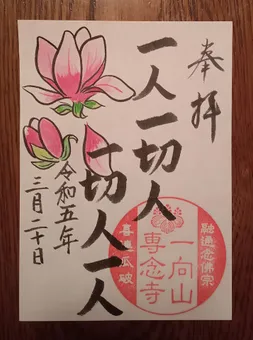 奉拝
一人一切人
一切人一人
令和五年
三月二十日
融通念佛宗
一向山
専念寺
喜連瓜破